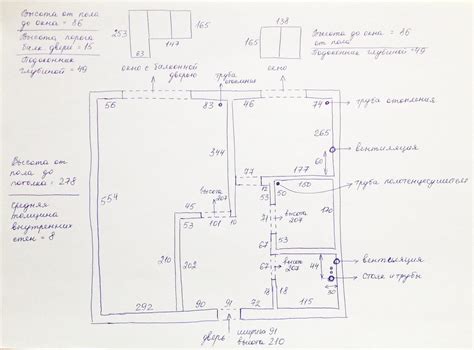 Высота от пола
до окна = 86
Высота порога
балк. двери = 15
Подоконник
глубиной = 49
253
147
63
165
окно с балконной
дверью
труба
отопления
138
165
окно
Высота до окна = 86
от пола
Подоконник глубиной = 49
56
83
46
74
труба отопления
265
вентиляция
60
344
177
77
12
53
50
150
труба полотенцесушителя
Высота от
пола до
потолка = 278
средняя
толщина
внутренних
стен = 8
554
высота
207
45
53
101
10
31
высота
207
170
67
53
210
202
67
высота
207
44
вентиляция
стояк и трубы
30
18
18
292
90
91
72
115
дверь
ширина 91
высота 210